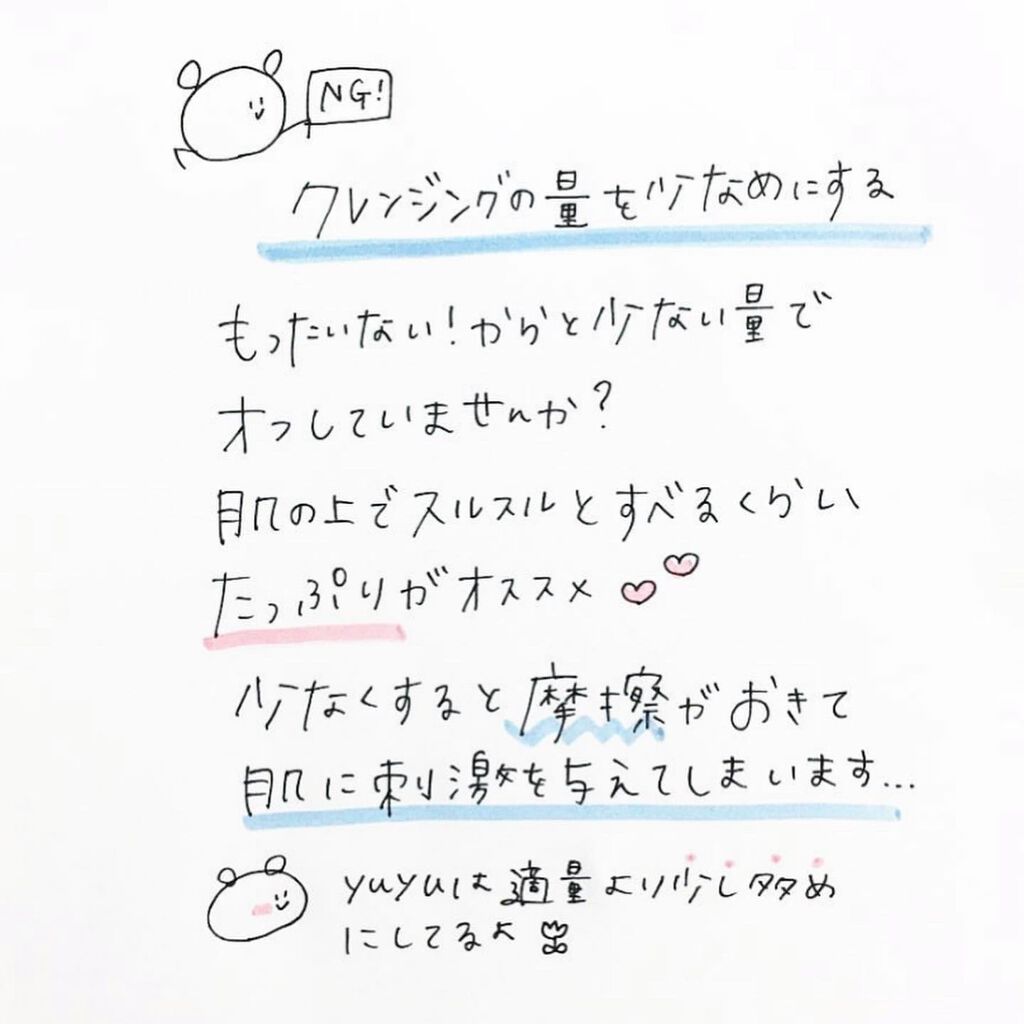 NG!
クレンジングの量を少なめにする
もったいない!からと少ない量で
オフしていませんか?
肌の上でスルスルとすべるくらい
たっぷりがオススメ
少なくすると摩擦がおきて
肌に刺激を与えてしまいます...
yuyuは適量より少し多め
にしてるよ